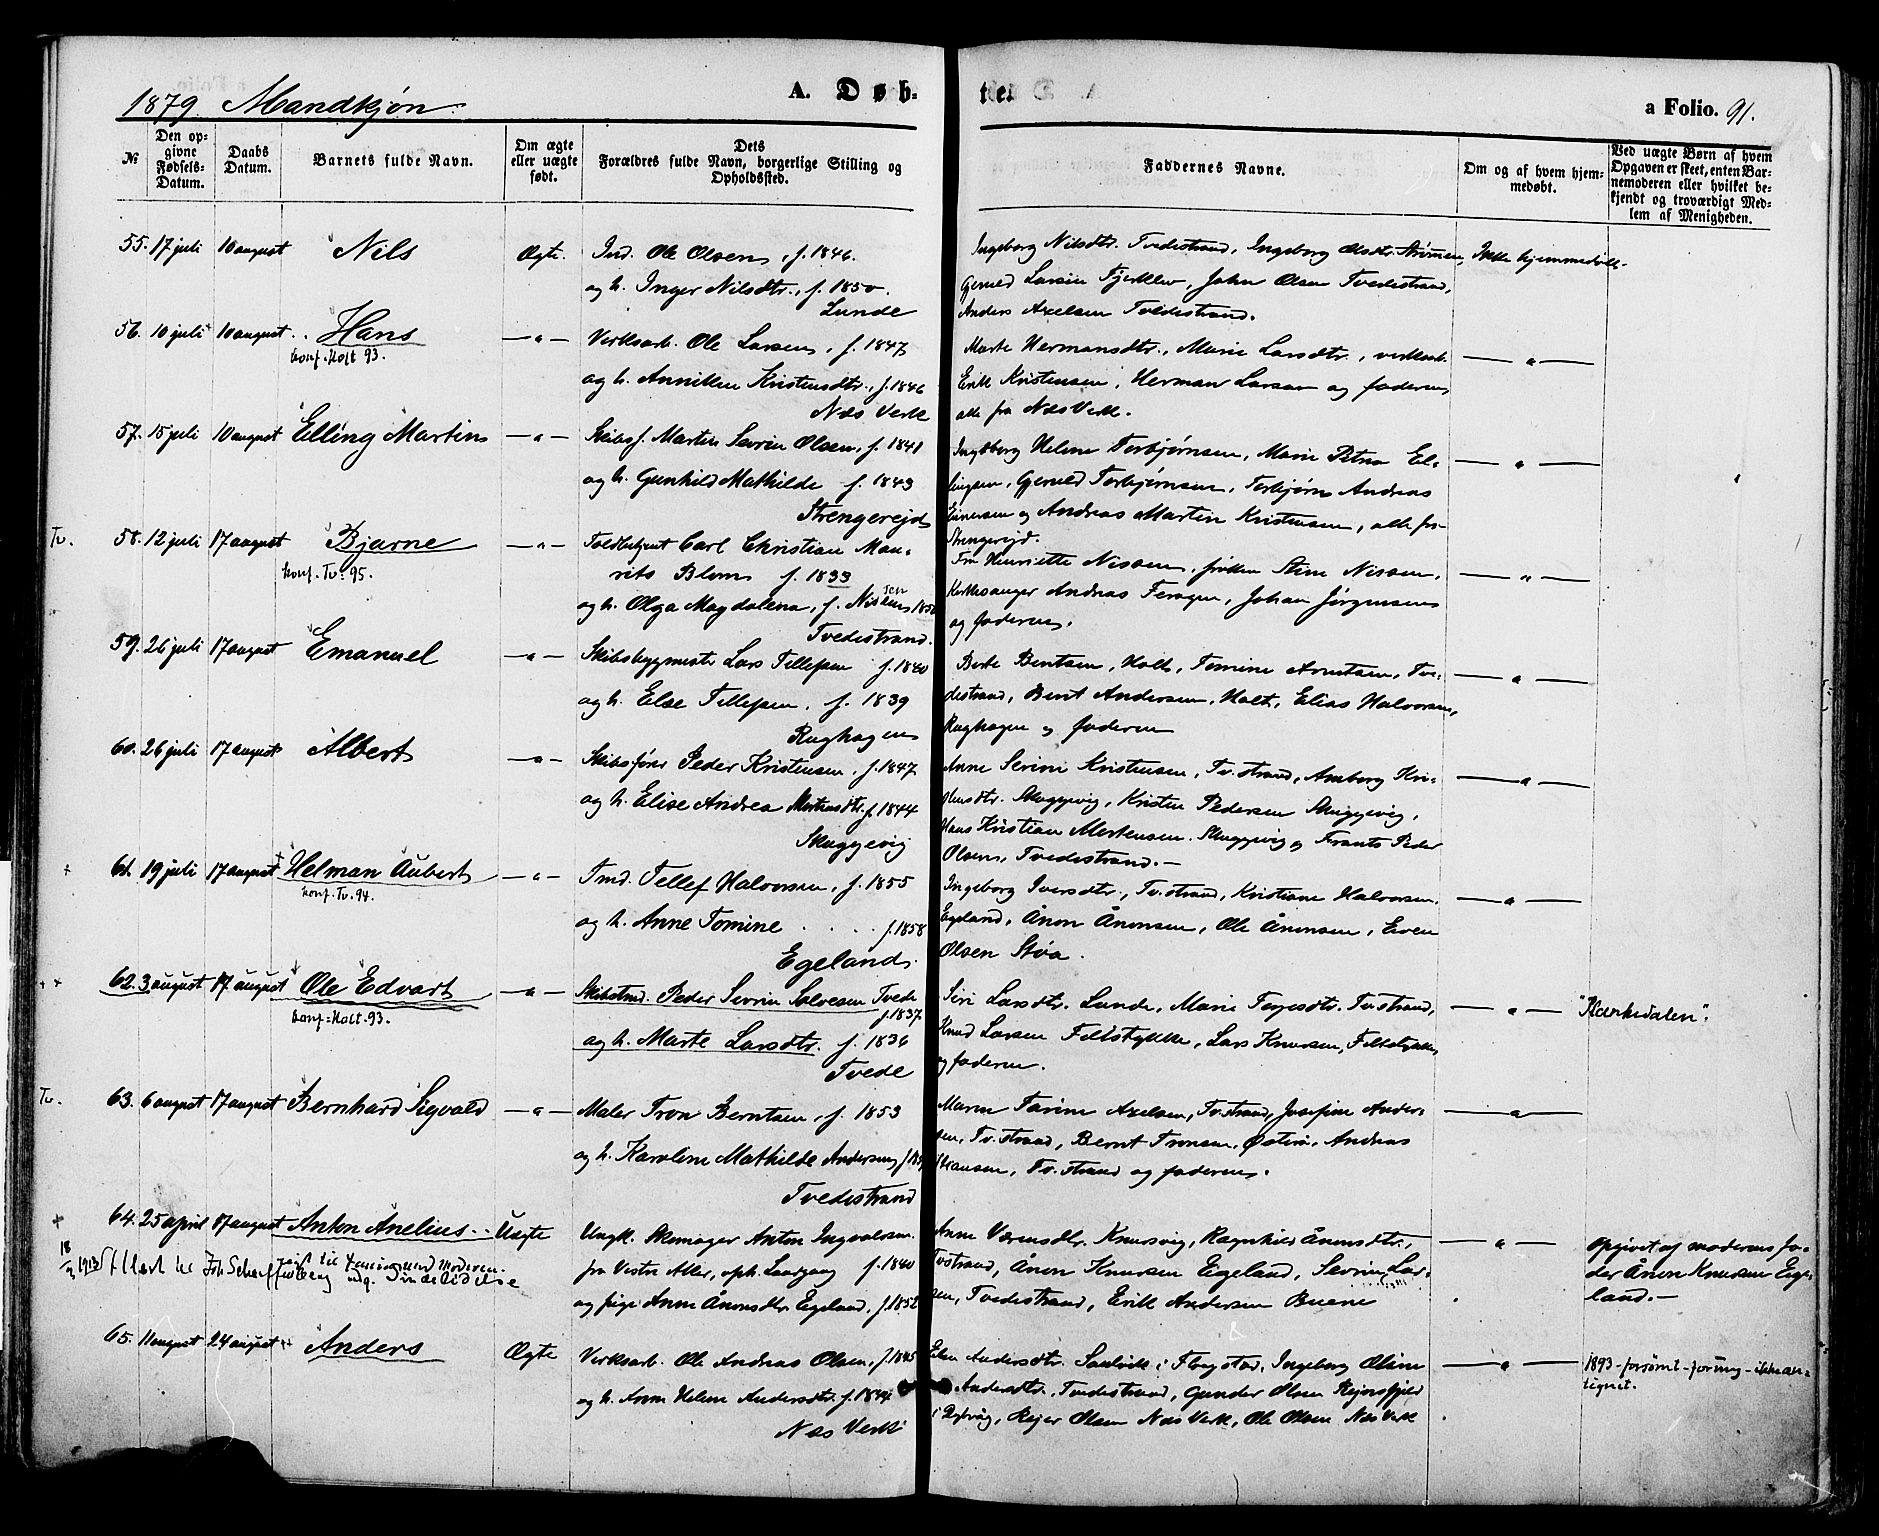 1879. Mandkjøn.
A. Døb-
te.
a Folio. 91.
№
Den op-
givne
Fødsels-
Datum.
Daabs
Datum.
Barnets fulde Navn.
Om ægte
eller uægte
født.
Dets
Forældres fulde Navn, borgerlige Stilling og
Opholdssted.
Faddernes Navne.
Om og af hvem hjem-
medøbt.
Ved uægte Børn af hvem
Opgaven er skeet, enten Bar-
nemoderen eller hvilket be-
kjendt og troværdigt Med-
lem af Menigheden.
55. 17 juli 10 august Nils Ægte. Ind. Ole Olsen, f. 1846.
og h. Inger Nilsdtr., f. 1850.
Lunde
Ingeborg Nilsdtr. Tvedestrand, Ingeborg Olsdtr. Strømmen, Ikke hjemmedøbt.
Geruld Larsen Fjerklev, John Olsen Tvedestrand,
Anders Axelsen Tvedestrand.
56. 10 juli 10 august Hans —"— Verksarb. Ole Larsen, f. 1847
konf. Holt 93.
og h. Anniken Kristensdtr., f. 1846
Næs Verk
Marte Hermansdtr., Marie Larsdtr., verksarb. —"—
Erik Kristensen, Herman Larsen og faderen,
alle fra Næs Verk.
57. 15 juli 10 august Elling Martin —"— Skibsf. Martin Severin Olsen, f. 1841
og h. Gunhild Mathilde f. 1843
Strengereid
Ingeborg Helene Torbjørnsen, Marie Petrea El- —"—
lingsen, Geruld Torbjørnsen, Torbjørn Andreas
Einersen og Andreas Martin Kristensen, alle fra
Strengereid.
Tv. 58. 12 juli 17 august Bjarne —"— Toldbetjent Carl Christian Mau-
konf. Tv. 95.
ritz Blom f. 1833
og h. Olga Magdalena, f. Nissen
Tvedestrand.
Fru Henriette Nissen, frøken Stine Nissen, —"—
Kirkesanger Andreas Feragen, Johan Jørgensen
og faderen.
59. 26 juli 17 august Emanuel —"— Skibsbygmester Lars Tellefsen f. 1840
og h. Else Tellefsen, f. 1839
Rughagen
Berte Bentsen, Holt, Tomine Arntsen, Tve- —"—
destrand, Bent Andersen, Holt, Elias Halvorsen,
Rughagen og faderen
60. 26 juli 17 august Albert —"— Skibsfører Peder Kristensen, f. 1847
og h. Elise Andrea Mortensdtr. f. 1844
Skuggevig
Anne Serine Kristensen, Tv.strand, Amborg Kri- —"—
stensdtr. Skuggevig, Kristen Pedersen Skuggevig,
Hans Kristian Mortensen, Skuggevig og Frants Peder
Olsen, Tvedestrand.—
61. 19 juli 17 august Helman Aubert —"— Ind. Tellef Halvorsen, f. 1855
konf. Tv. 94.
og h. Anne Tomine . . . . f. 1858
Egeland.
Ingeborg Iversdtr., Tv.strand, Kristiane Halvorsen, —"—
Egeland, Ånon Ånonsen, Ole Ånonsen, Even
Olsen Støa.
62. 3 august 17 august Ole Edvart —"— Skibstmd. Peder Severin Salvesen Tvede
konf. Holt. 93.
f. 1837
og h. Marte Larsdtr. f. 1836
Tvede
Siri Larsdtr. Lunde, Marie Tergesdtr. Tv.strand, —"—
Knud Larsen Feltstykke, Lars Knutsen, Feltstykke,
og faderen.
Tv. 63. 6 august 17 august Bernhard Sigvald —"— Maler Tron Berntsen, f. 1853
og h. Karoline Mathilde Andersen,
Tvedestrand
Maren Tarine Axelsen, Tv.strand, Josefine Ander- —"—
sen, Tv.strand, Bernt Tronsen, Østerå, Andreas
Hansen, Tv.strand og faderen.
64. 25 april 17 august Anton Anelius Uægte Ungk. Skomager Anton Ingvaldsen
fra Vestre Aller, oph. f. 1840
og pige Anne Ånonsdtr. Egeland, f. 1852
Anne Værensdtr. Knutsvig, Ragnhild Ånonsdtr., —"—
Tvstrand, Ånon Knutsen Egeland, Severin Lar-
sen, Tvedestrand, Erik Andersen Buene
opgivet af moderens fa-
der Ånon Knutsen Ege-
land.—
65. 11 august 24 august Anders Ægte Verksarb. Ole Andreas Olsen, f. 1845
og h. Anne Helene Andersdtr. f. 1844
Næs Verk
Ellen Andersdtr. Saulvik i Flagstad, Ingeborg Oline —"—
Andersdtr., Tvedestrand, Gunder Olsen Rejersfjeld
i Dybvåg, Rejer Olsen Næs Verk, Ole Olsen Næs Verk